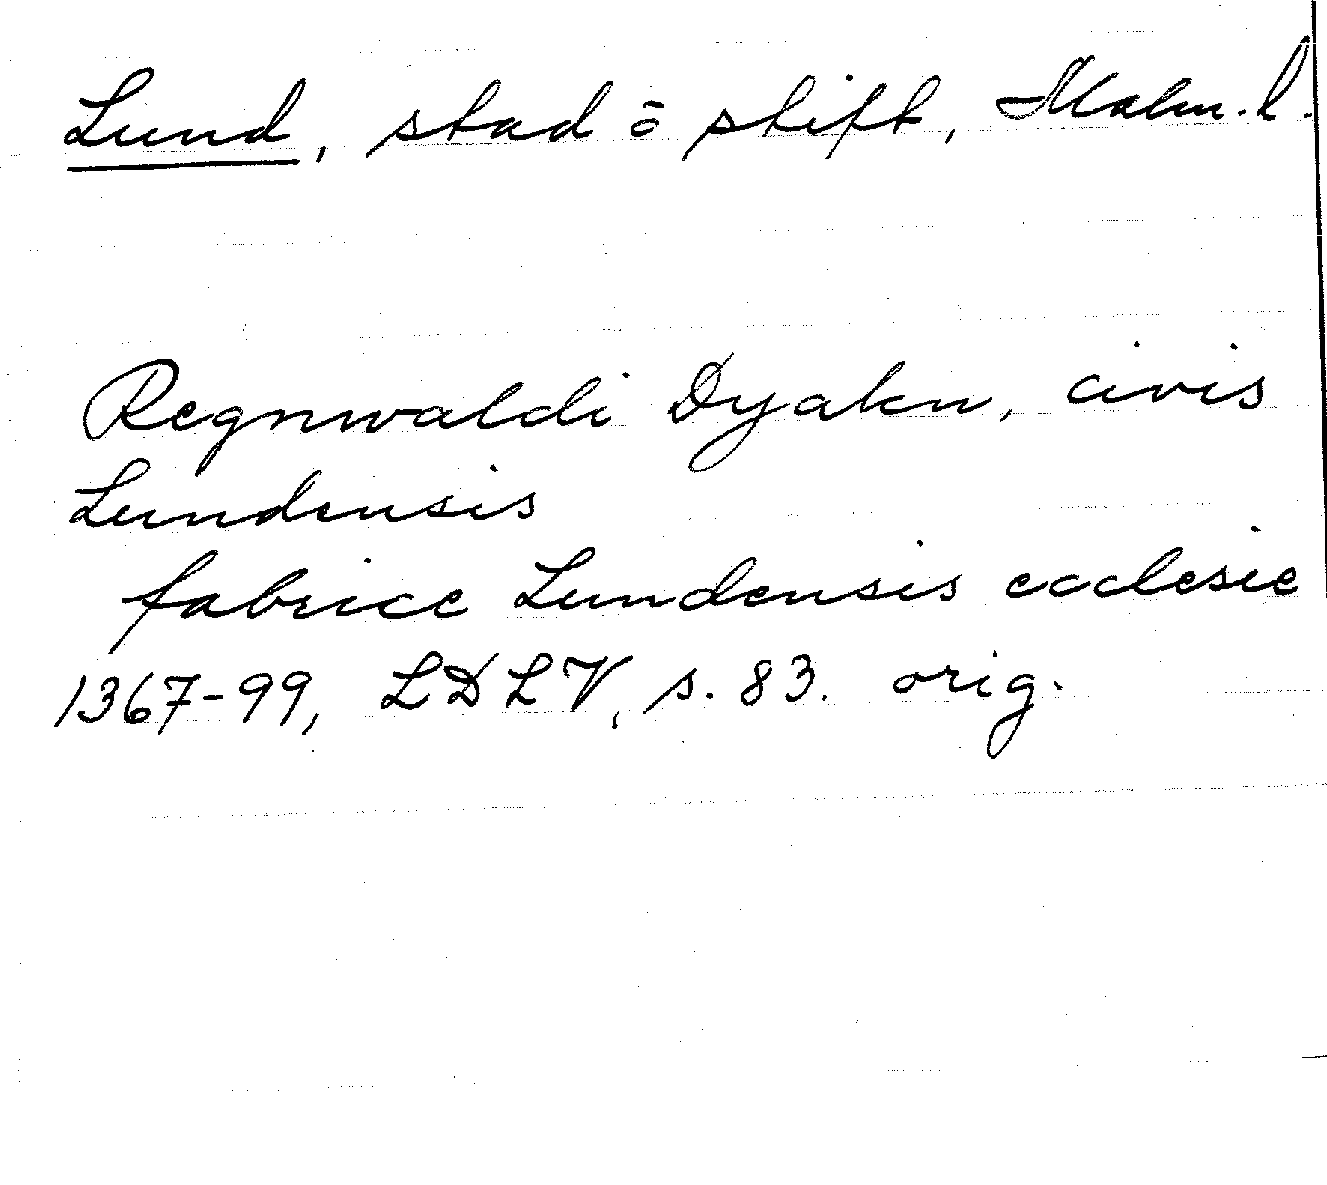 Lund, stad o stift, Malm. l.
Regnwaldi Dyakn, civis
Lundensis
fabrice Lundensis ecclesie
1367-99, LDLV, s. 83. orig.